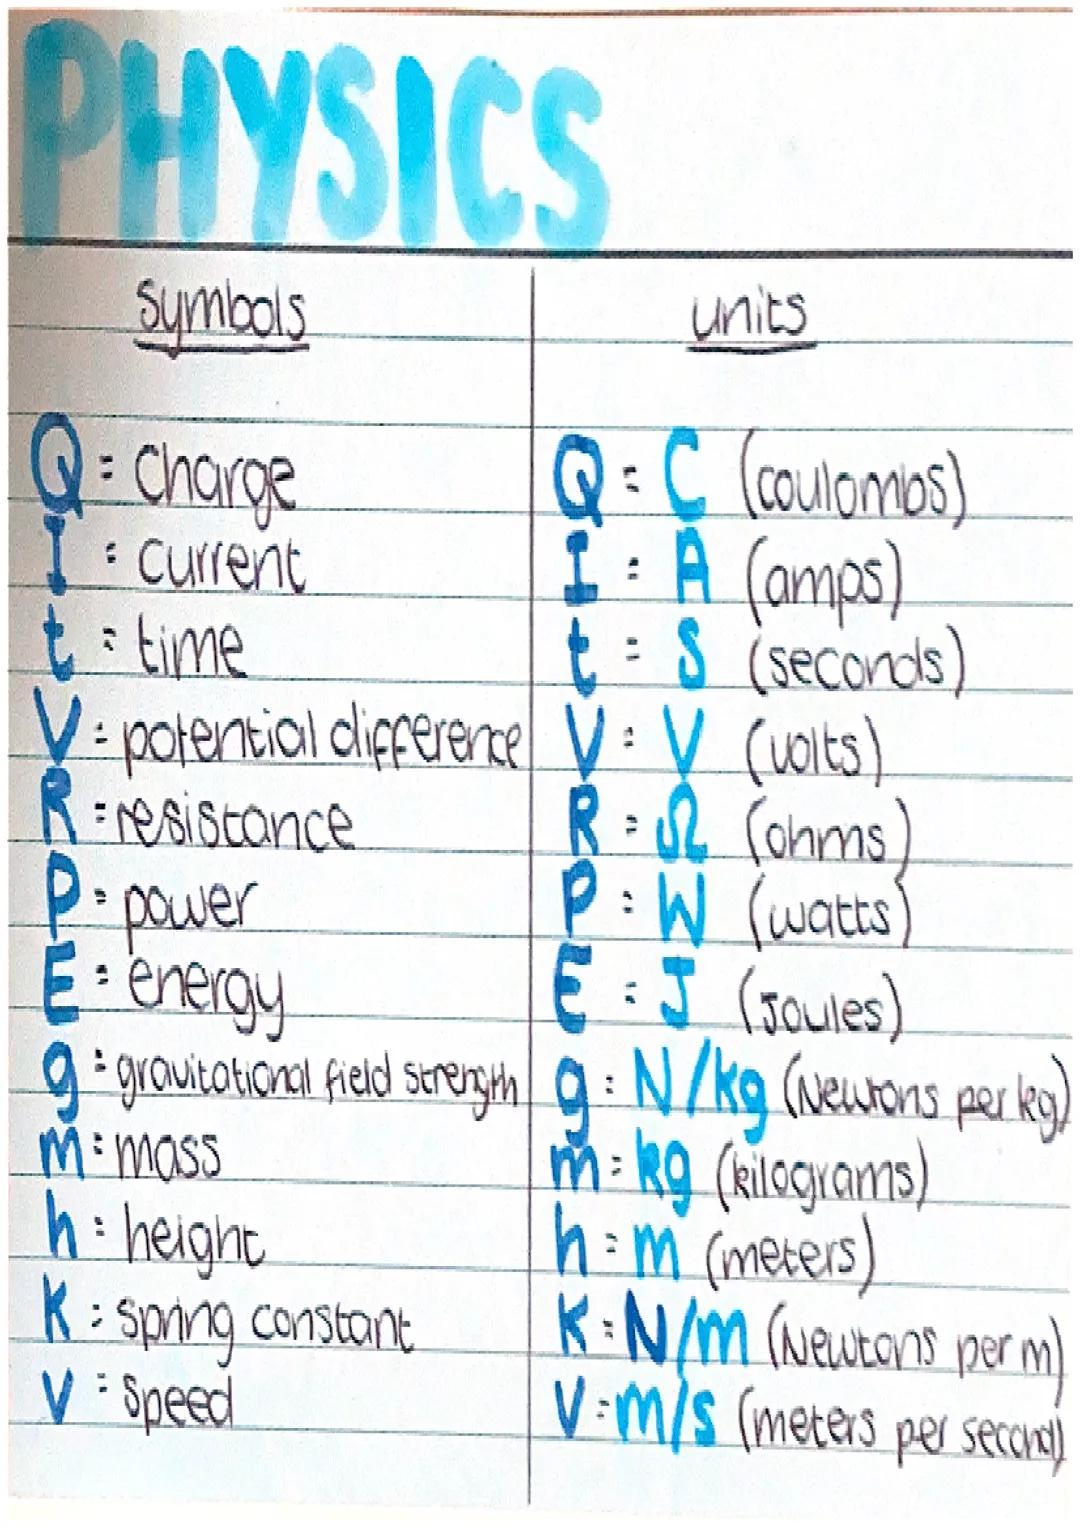 PHYSICS
symbols
units
Q = charge
Q = C (coulombs)
I = current
I = A (amps)
t = time
t = s (seconds)
V = potential difference
V = V (volts)
R = resistance
R = Ω (ohms)
P = power
P = W (watts)
E = energy
E = J (Joules)
g = gravitational field strength
g = N/kg (Newtons per kg)
m = mass
m = kg (kilograms)
h = height
h = m (meters)
K = spring constant
K = N/m (Newtons per m)
V = speed
V = m/s (meters per second)